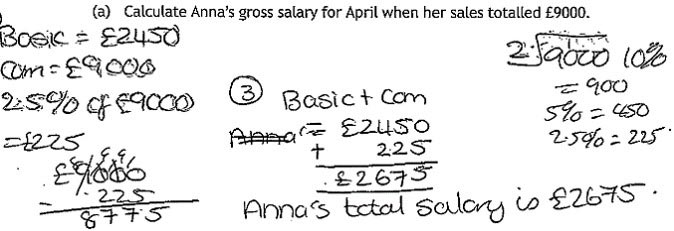 (a) Calculate Anna's gross salary for April when her sales totalled £9000.
Basic = £2450
Com = £9,000
2.5% of £9000
= £225
£9000
- 225
8775
③ Basic + Com
Anna = £2450
+ 225
£2675
Anna's total salary is £2675.
10%
= 900
5% = 450
2.5% = 225